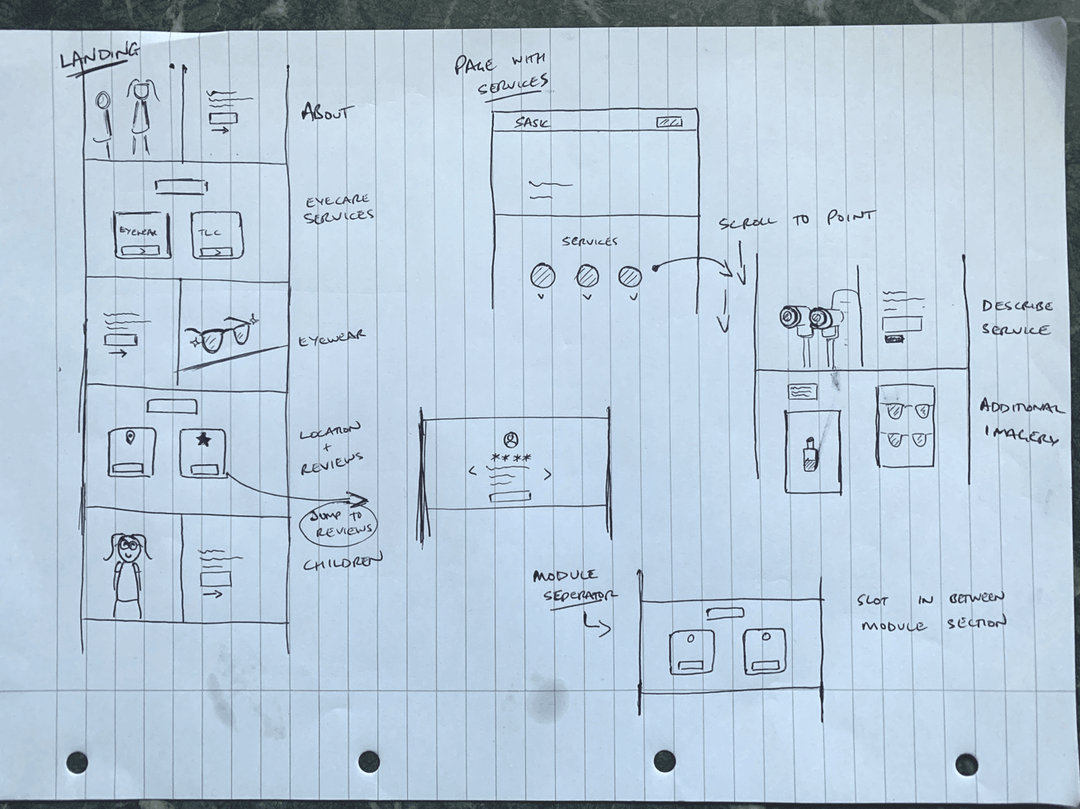 LANDING
ABOUT
EYECARE
SERVICES
EYEWEAR
TLC
EYEWEAR
LOCATION
+
REVIEWS
JUMP TO
REVIEWS
CHILDREN
PAGE WITH
SERVICES
SASK
SERVICES
SCROLL TO POINT
DESCRIBE
SERVICE
ADDITIONAL
IMAGERY
****
< >
MODULE
SEPERATOR
SLOT IN BETWEEN
MODULE SECTION